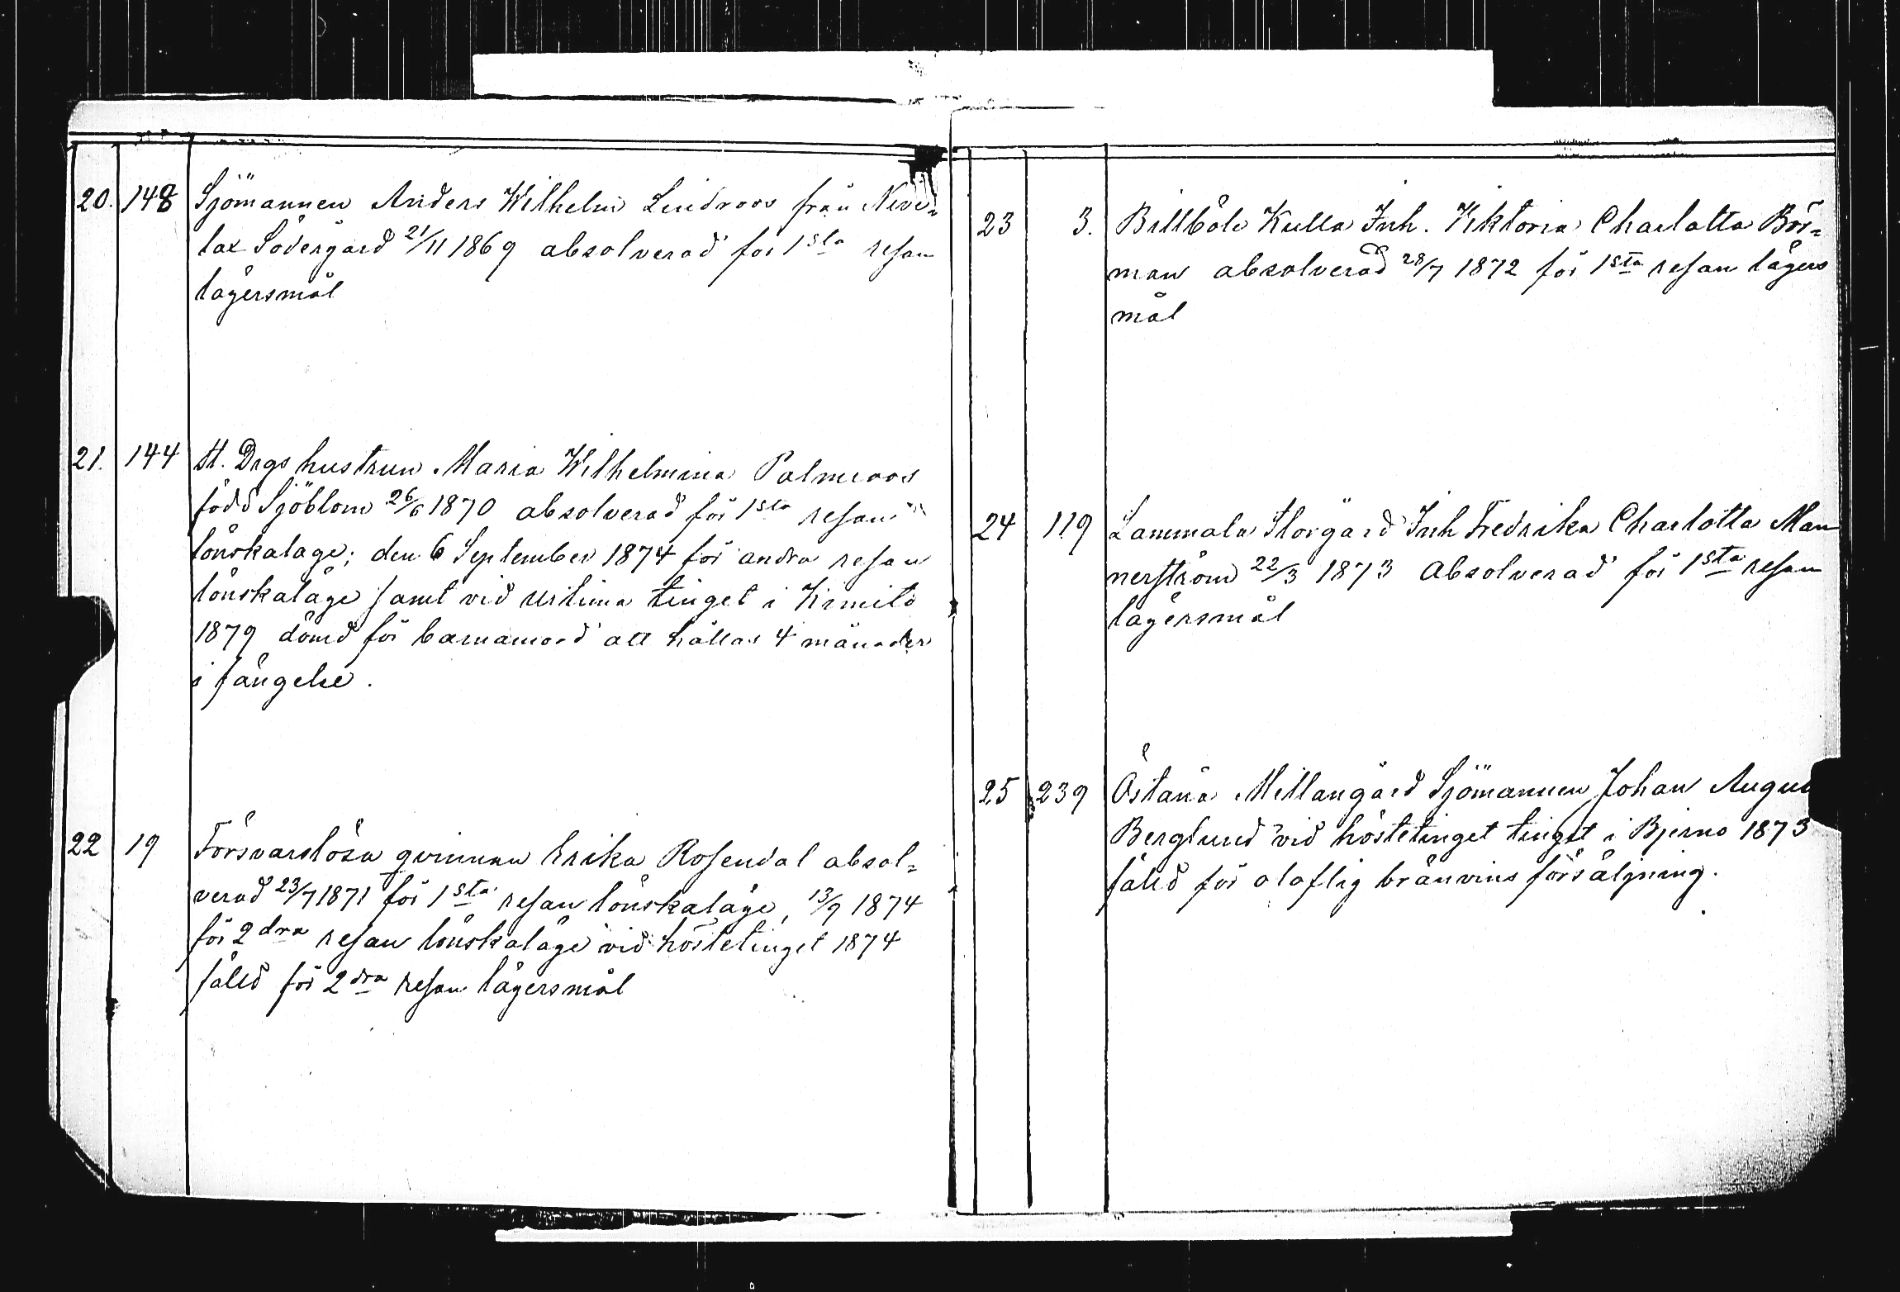 20. 148 Sjömannen Anders Wilhelm Lindroos från Nivi=
lax Södergård 21/11 1869 absolverad för 1sta resan
lägersmål
21. 144 St. Drgs hustrun Maria Wilhelmina Palmroos
född Sjöblom 26/6 1870 absolverad för 1sta resan
lönskaläge; den 6 September 1874 för andra resan
lönskaläge samt vid urtima tinget i Kimito
1879 dömd för barnamord att hållas 4 månader
i fängelse.
22 19 Försvarslösa qvinnan Erika Rosendal absol=
verad 23/7 1871 för 1sta resan lönskaläge, 13/9 1874
för 2dra resan lönskaläge vid höstetinget 1874
fälld för 2dra resan lägersmål
23 3. Billböle Kulla Inh. Viktoria Charlotta Bör=
man absolverad 28/7 1872 för 1sta resan lägers
mål
24 119 Lammala Storgård Inh Fredrika Charlotta Man
nerström 22/3 1873 absolverad för 1sta resan
lägersmål
25 239 Östanå Mellangård Sjömannen Johan Augus
Berglund vid höstetinget tinget i Bjerno 1873
fälld för olaflig bränvins försäljning.